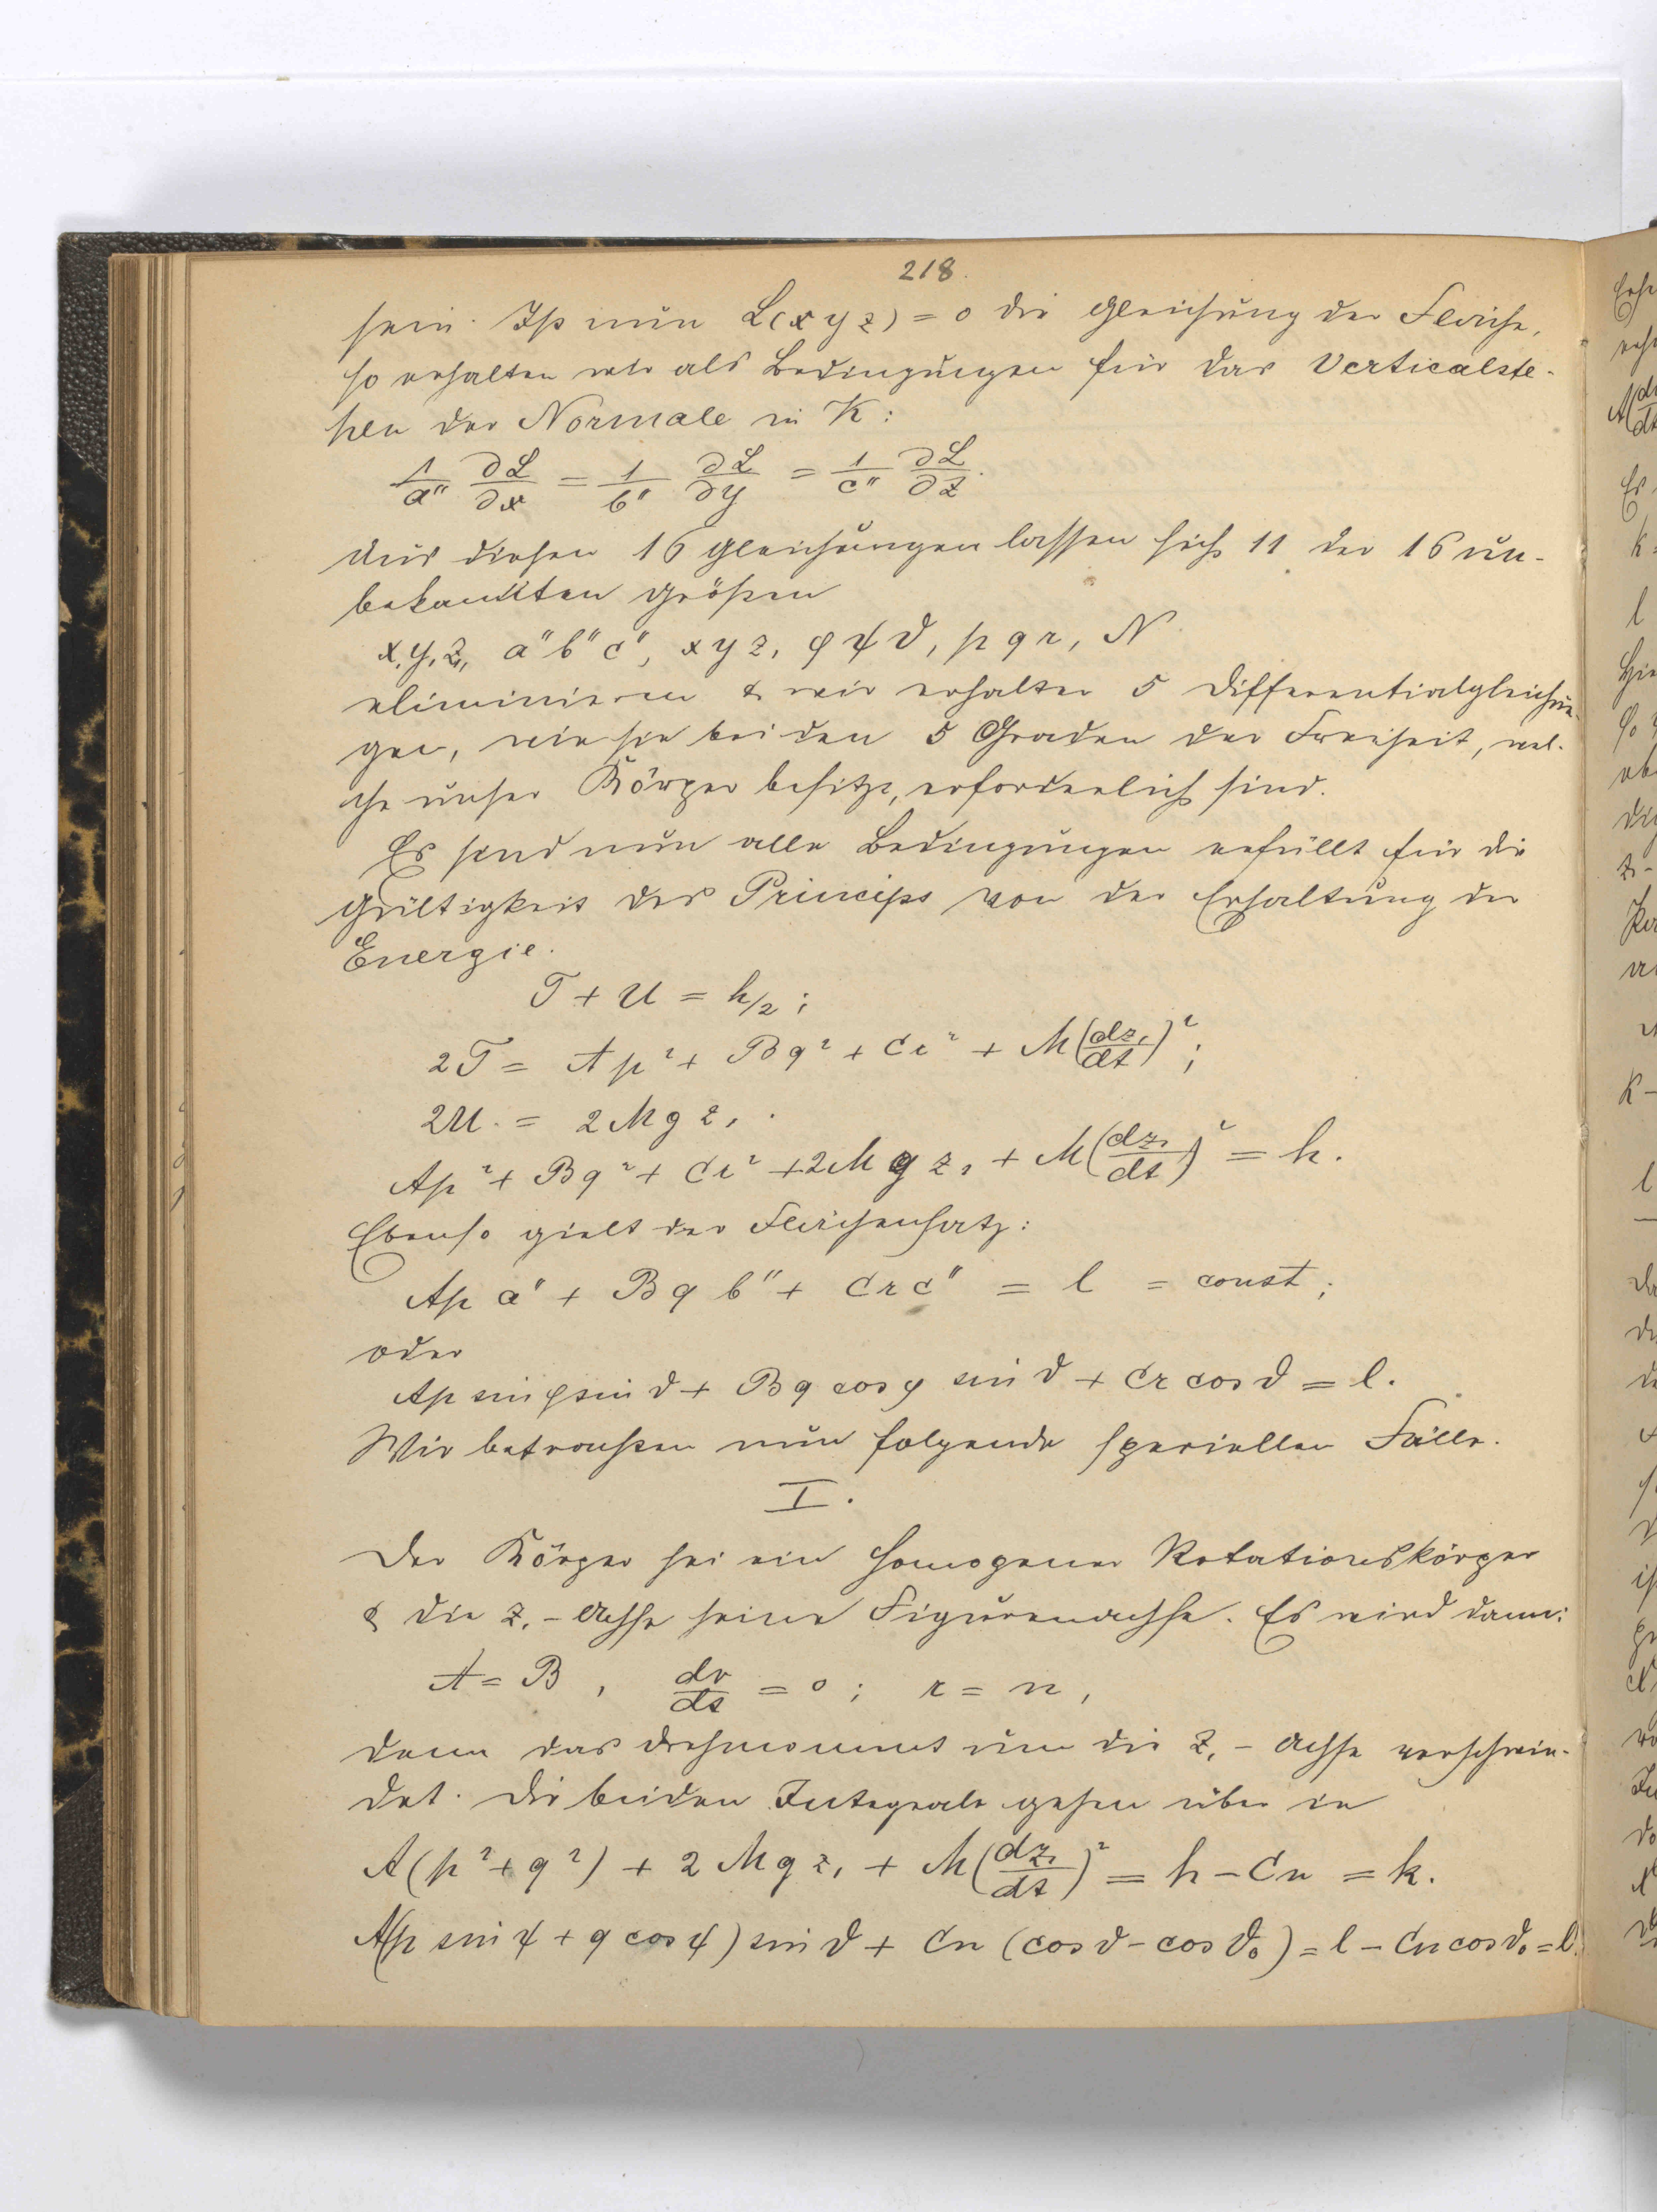 218.
sein. Ist nun L(x y z) = 0 die Gleichung der Fläche,
so erhalten wir als Bedingungen für das Verticalste-
hen der Normale in K:
1/a'' ∂L/∂x = 1/b'' ∂L/∂y = 1/c'' ∂L/∂z.
Aus diesen 16 Gleichungen lassen sich 11 der 16 un-
bekannten Größen
x₁y₁z₁, a''b''c'', x y z, φ ψ ϑ, p q r, N
eliminieren & wir erhalten 5 Differentialgleichun-
gen, wie sie bei den 5 Graden der Freiheit, wel-
che unser Körper besitzt, erforderlich sind.
Es sind nun alle Bedingungen erfüllt für die
Gültigkeit des Princips von der Erhaltung der
Energie.
T + U = h/2;
2T = Ap² + Bq² + Cr² + M(dz₁/dt)²;
2U = 2Mgz₁.
Ap² + Bq² + Cr² + 2Mgz₁ + M(dz₁/dt)² = h.
Ebenso gielt der Flächensatz:
Ap a'' + Bq b'' + Cr c'' = l = const;
oder
Ap sin φ sin ϑ + Bq cos φ sin ϑ + Cr cos ϑ = l.
Wir betrachten nun folgende speciellen Fälle.
I.
Der Körper sei ein homogener Rotationskörper
& die z₁-Achse seine Figurenachse. Es wird dann:
A = B, dr/dt = 0; r = n,
denn das Drehmoment um die z₁-Achse verschwin-
det. Die beiden Integrale gehen über in
A(p² + q²) + 2Mgz₁ + M(dz₁/dt)² = h - Cn = k.
A(p sin ψ + q cos ψ) sin ϑ + Cn (cos ϑ - cos ϑ₀) = l - Cn cos ϑ₀ = l'